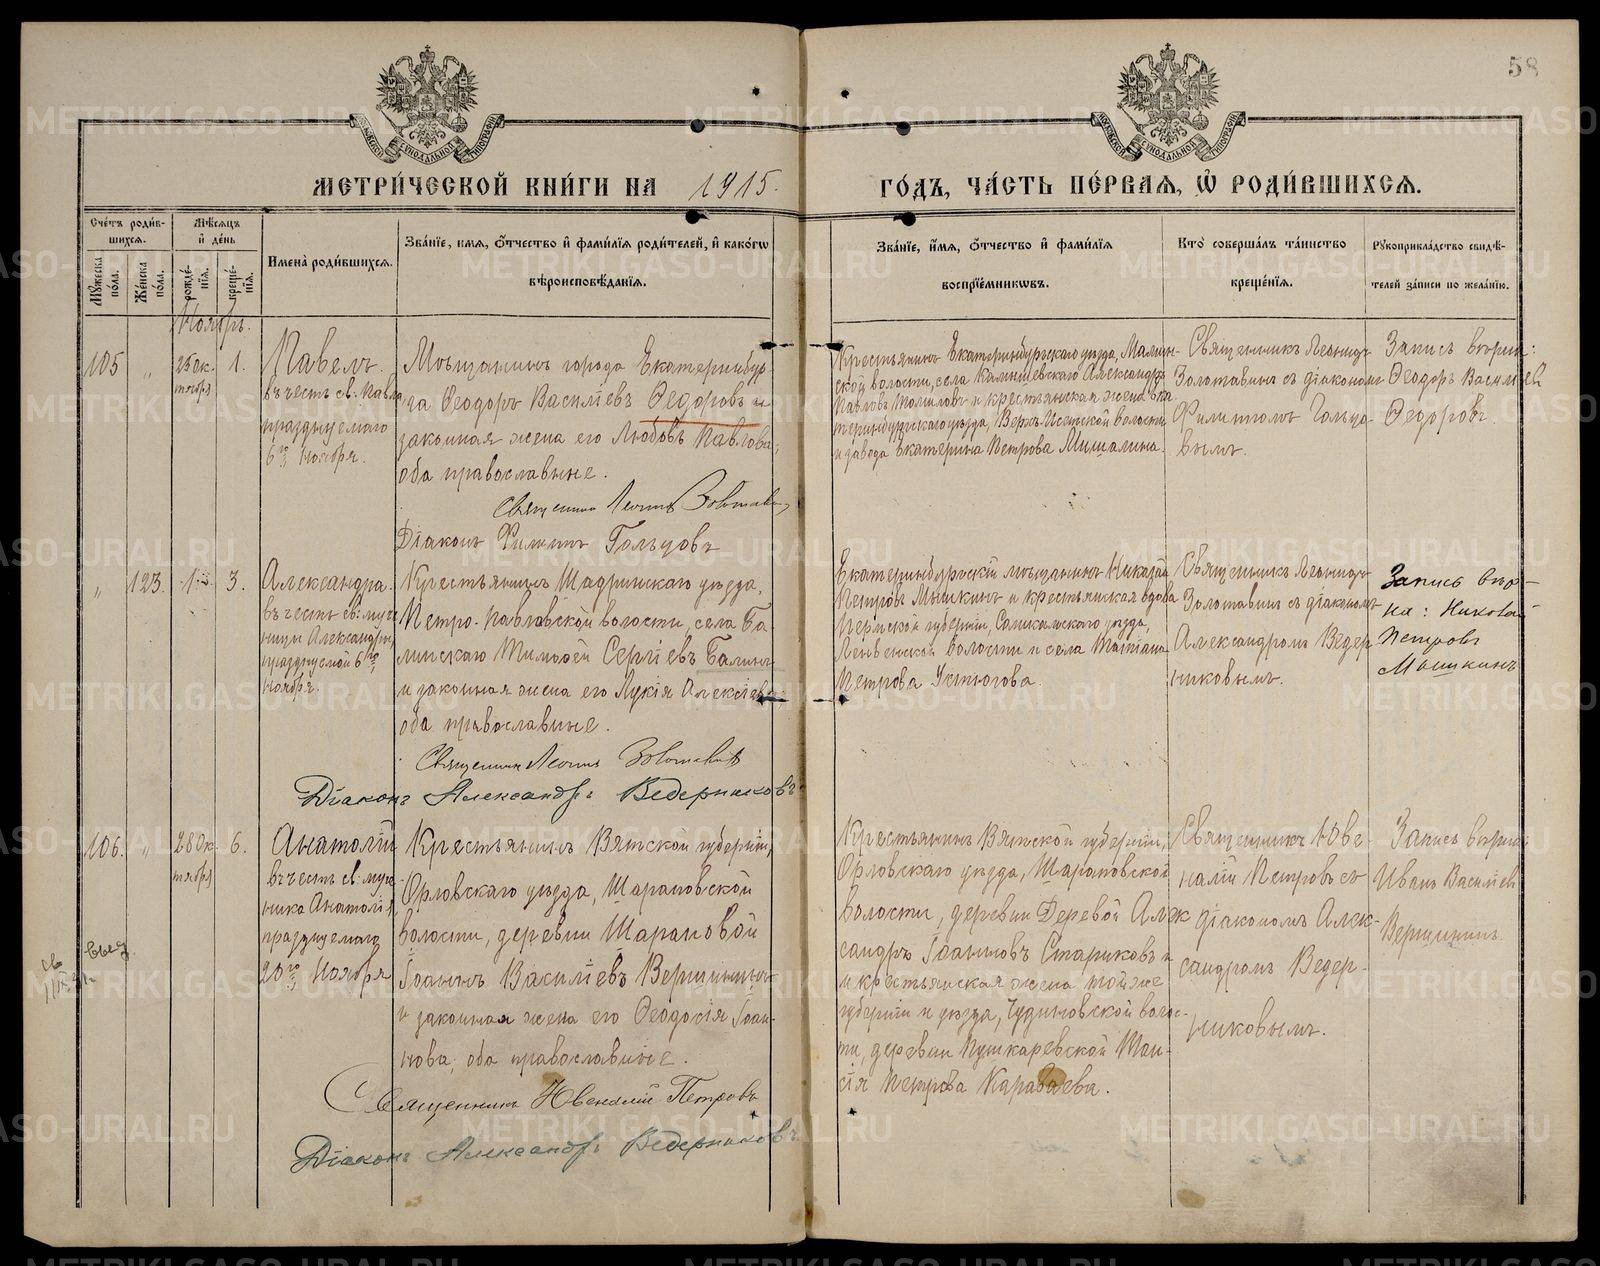 58
МЕТРИ́ЧЕСКОЙ КНИ́ГИ НА 1915.
ГО́ДЪ, ЧА́СТЬ ПЕ́РВАЯ, Ѡ РОДИ́ВШИХСЯ.
Сче́тъ роди́в-
шихся.
Мѣ́сяцъ
и де́нь
Му́жеска по́ла.
Же́нска по́ла.
рожде́-
нїя.
креще́-
нїя.
Имена̀ роди́вшихся.
Зва́нїе, имя, о́тчество и фами́лїя роди́телей, и како́гѡ
вѣроисповѣ́данїя.
Зва́нїе, и́мя, о́тчество и фами́лїя
воспрїе́мниковъ.
Кто̀ соверша́лъ та́инство
креще́нїя.
Рукоприкла́дство свидѣ́-
телей за́писи по жела́нїю.
Ноябрь.
105
"
25 Ок-
тября
1.
Павелъ
въ честь св. Павла
празднуемаго
6го Ноября.
Мѣщанинъ города Екатеринбур-
га Ѳеодоръ Василіевъ Ѳеодоровъ и
законная жена его Любовь Павлова;
оба православные.
Священникъ Леонидъ Золотавинъ
Діаконъ Филиппъ Гольцовъ
Крестьянинъ Екатеринбургскаго уѣзда, Мамин-
ской волости, села Камышевскаго Александръ
Павловъ Томиловъ и крестьянская жена Ека-
теринбургскаго уѣзда, Верхъ-Исетской волости
и завода Екатерина Петрова Мишалина.
Священникъ Леонидъ
Золотавинъ съ діакономъ
Филиппомъ Гольцо-
вымъ.
Запись вѣрна:
Ѳеодоръ Василіев
Ѳеодоровъ.
"
123.
1
3.
Александра.
въ честь св. муче-
ницы Александры,
празднуемой 6го
Ноября.
Крестьянинъ Шадринскаго уѣзда,
Петро-Павловской волости, села Ба-
линскаго Тимоѳей Сергіевъ Балинъ
и законная жена его Лукія Алексіева
оба православные.
Священникъ Леонидъ Золотавинъ
Діаконъ Александръ Ведерниковъ
Екатеринбургскій мѣщанинъ Николай
Петровъ Мышкинъ и крестьянская вдова
Пермской губерніи, Соликамскаго уѣзда,
Ленвенской волости и села Татіана
Петрова Устюгова.
Священникъ Леонидъ
Золотавинъ съ діакономъ
Александромъ Ведер-
никовымъ.
Запись вѣр-
на: Николай
Петровъ
Мышкинъ
106.
"
28 Ок-
тября
6.
Анатолій
въ честь св. муче-
ника Анатолія,
празднуемаго
20го Ноября
Крестьянинъ Вятской губерніи,
Орловскаго уѣзда, Шарановской
волости, деревни Шарановой
Іоаннъ Василіевъ Вершининъ
и законная жена его Ѳеодосія Іоан-
нова, оба православные.
Священникъ Ювеналій Петровъ
Діаконъ Александръ Ведерниковъ
Крестьянинъ Вятской губерніи,
Орловскаго уѣзда, Шарановской
волости, деревни Деревой Алек
сандръ Іоанновъ Стариковъ и
и крестьянская жена той же
губерніи и уѣзда, Чудиновской волос-
ти, деревни Пушкаревской Таи-
сія Петрова Караваева.
Священникъ Юве-
налій Петровъ съ
діакономъ Алек-
сандромъ Ведер-
никовымъ.
Запись вѣрна:
Иванъ Василіев
Вершининъ.
выд.